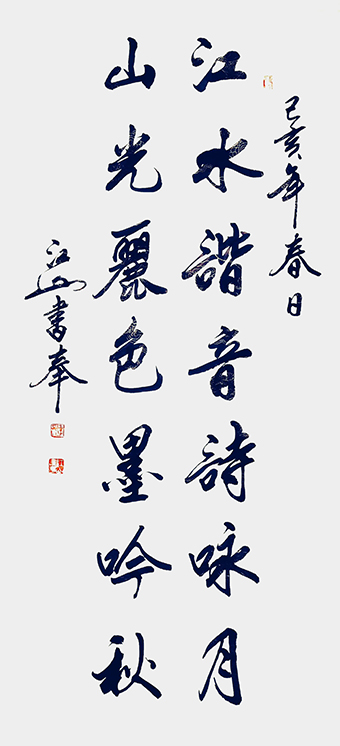 己亥年春日
江水諧音詩咏月
山光麗色墨吟秋
江山書奉